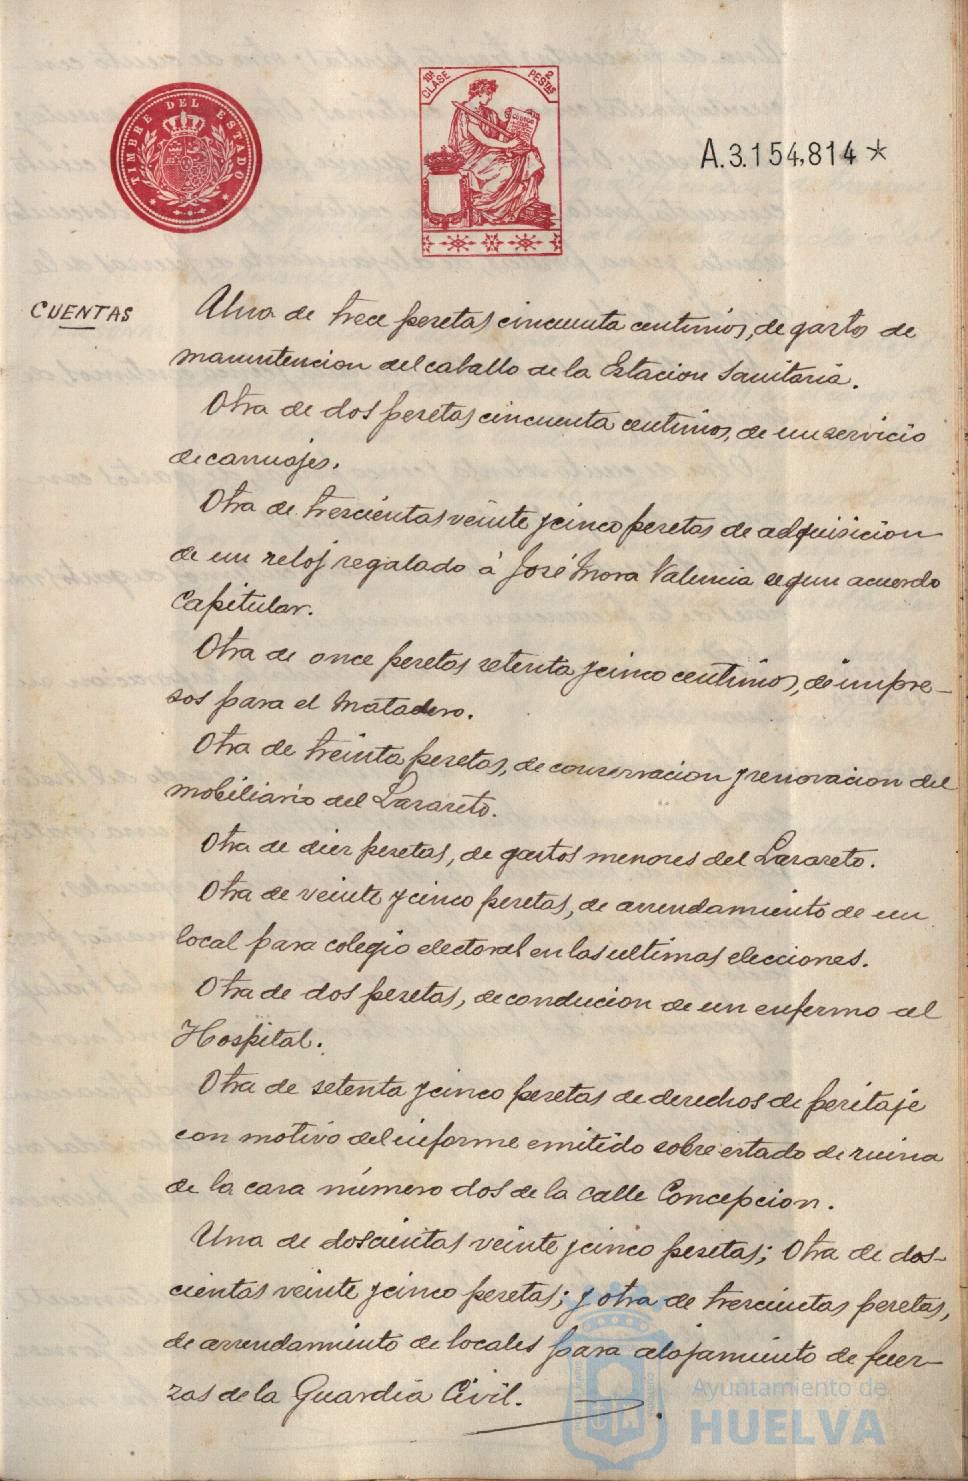 TIMBRE DEL ESTADO
10ª CLASE
2 PESTAS
A.3.154,814*
CUENTAS
Una de trece pesetas cincuenta centimos, de gastos de
manutencion del caballo de la Estacion Sanitaria.
Otra de dos pesetas cincuenta centimos, de un servicio
de carruajes.
Otra de trescientas veinte y cinco pesetas de adquisicion
de un reloj regalado á José Mora Valencia segun acuerdo
Capitular.
Otra de once pesetas setenta y cinco centimos, de impre-
sos para el Matadero.
Otra de treinta pesetas, de conservacion y renovacion del
mobiliario del Lazareto.
Otra de diez pesetas, de gastos menores del Lazareto.
Otra de veinte y cinco pesetas, de arrendamiento de un
local para colegio electoral en las ultimas elecciones.
Otra de dos pesetas, de conducion de un enfermo al
Hospital.
Otra de setenta y cinco pesetas de derechos de peritaje
con motivo del informe emitido sobre estado de ruina
de la casa número dos de la calle Concepcion.
Una de doscientas veinte y cinco pesetas; Otra de dos-
cientas veinte y cinco pesetas; y otra de trescientas pesetas,
de arrendamiento de locales para alojamiento de fuer-
zas de la Guardia Civil.
Ayuntamiento de
HUELVA